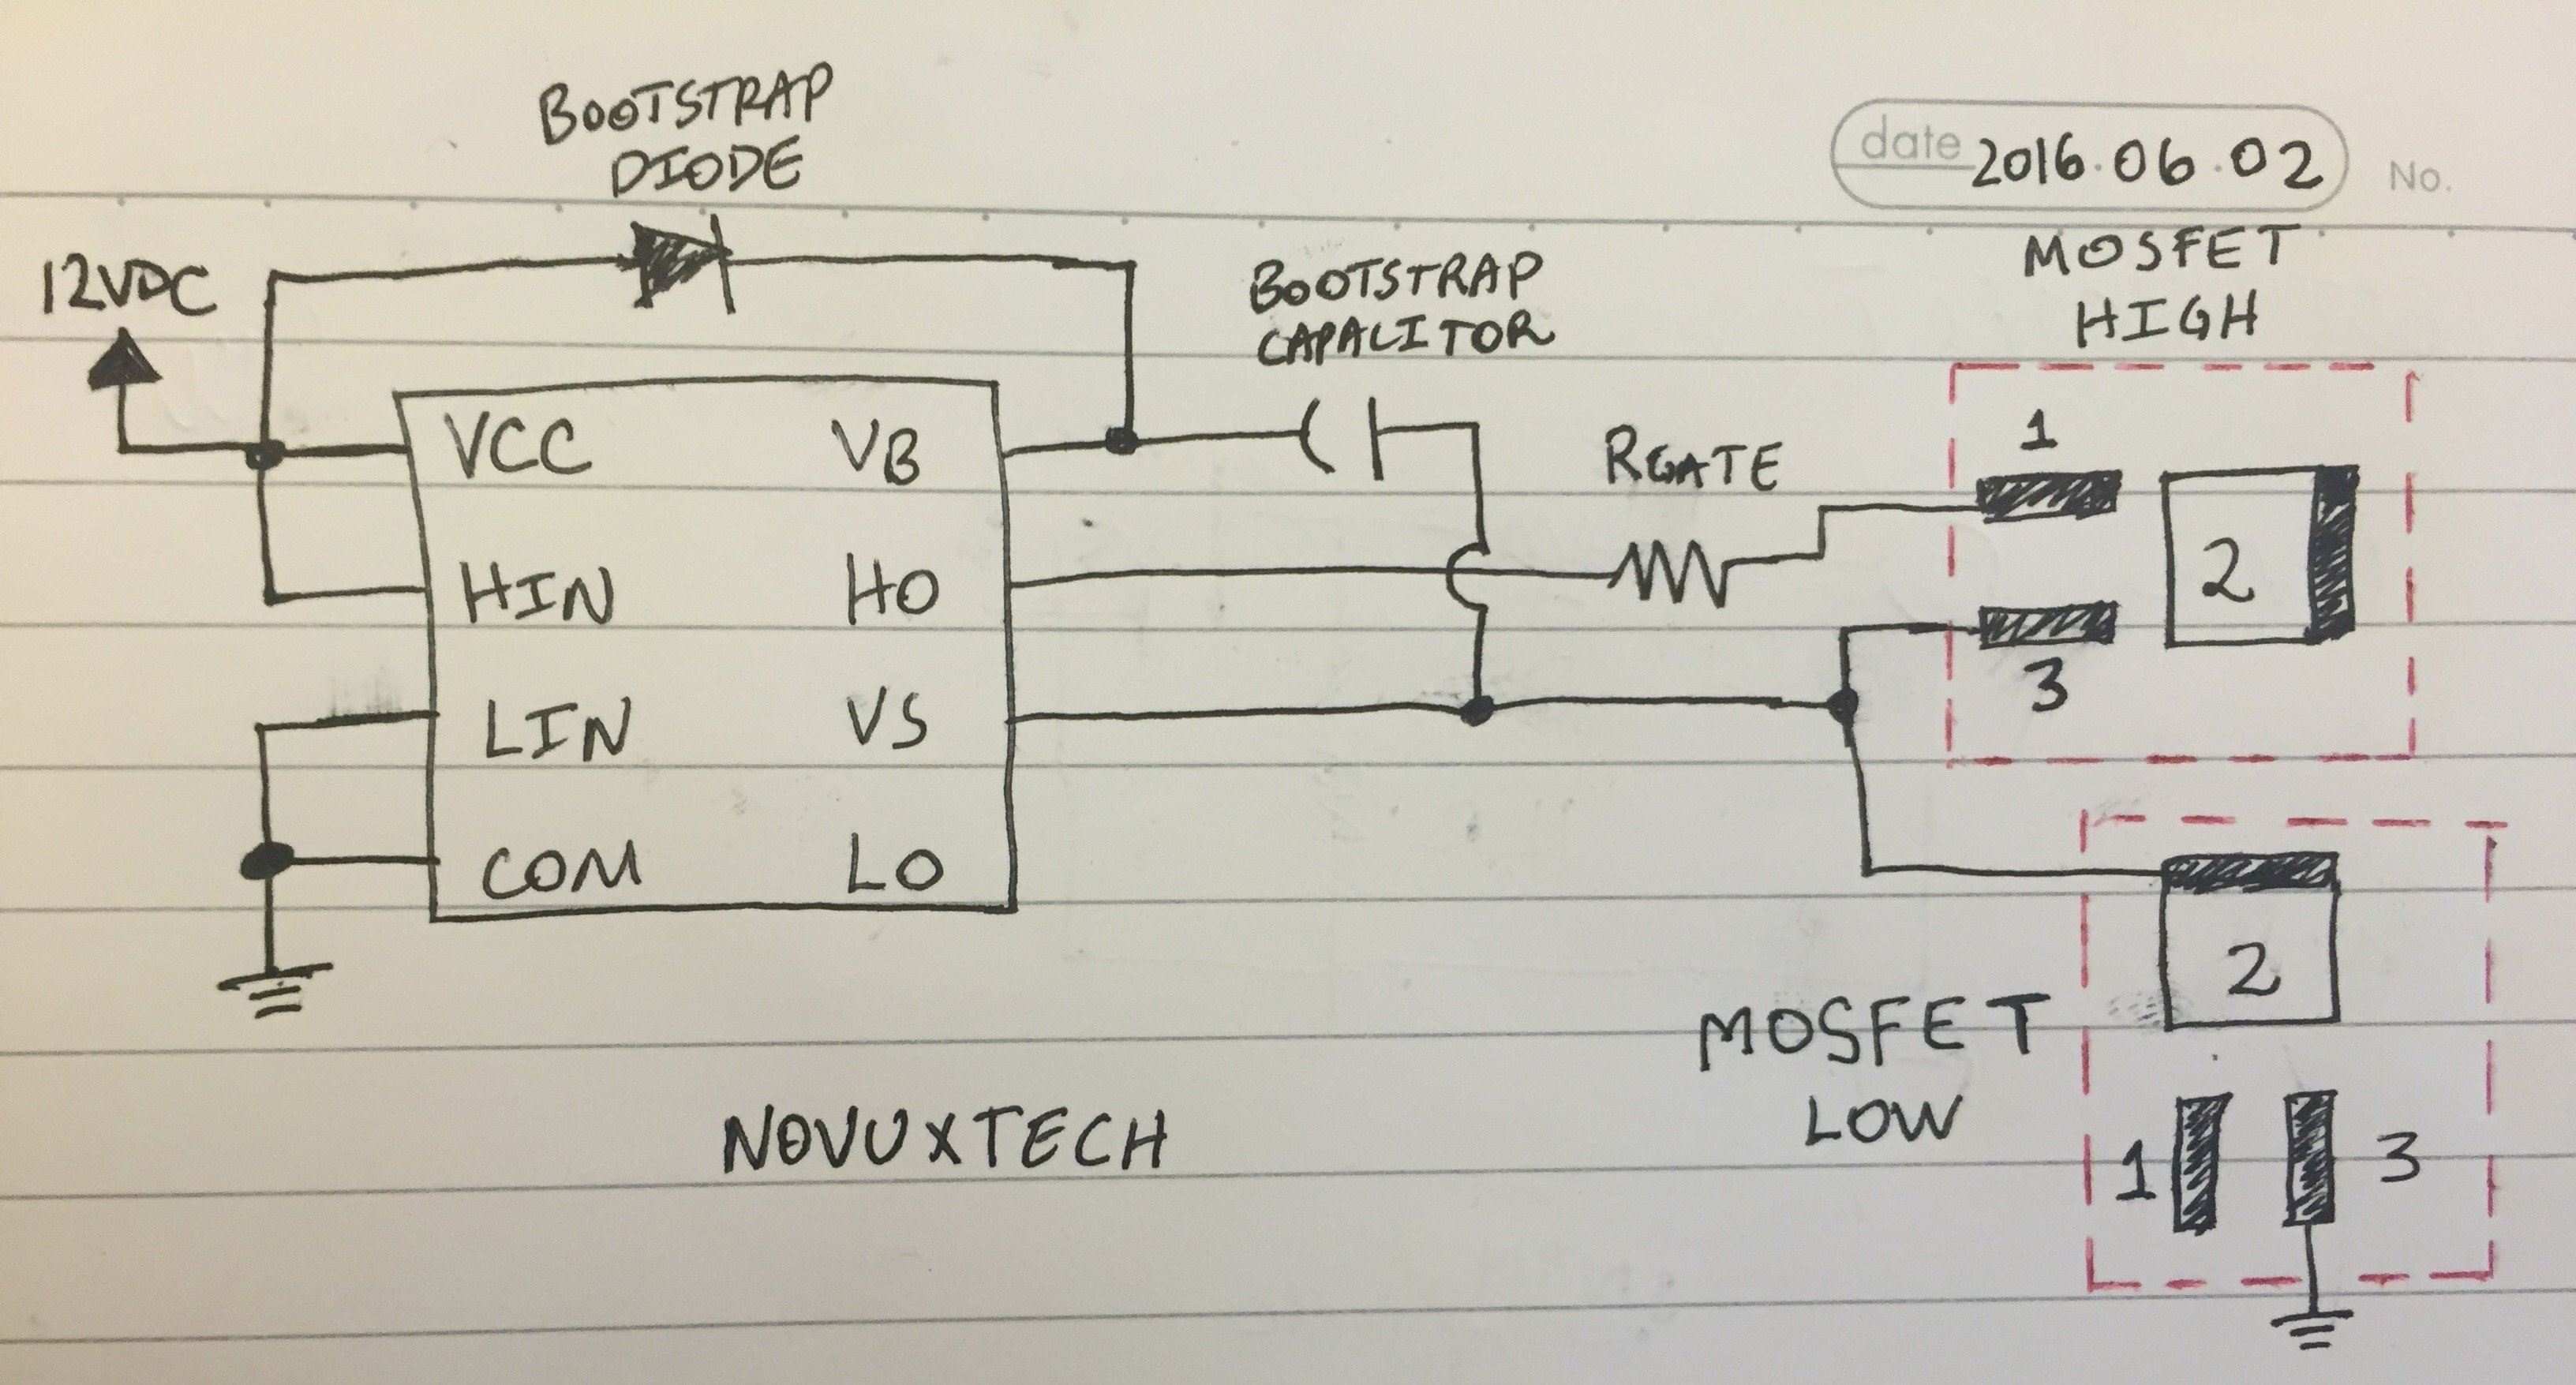 BOOTSTRAP
DIODE
date 2016.06.02 No.
12VDC
BOOTSTRAP
CAPACITOR
MOSFET
HIGH
VCC VB
HIN HO
LIN VS
COM LO
RGATE
1
2
3
MOSFET
LOW
2
1 3
NOVUXTECH